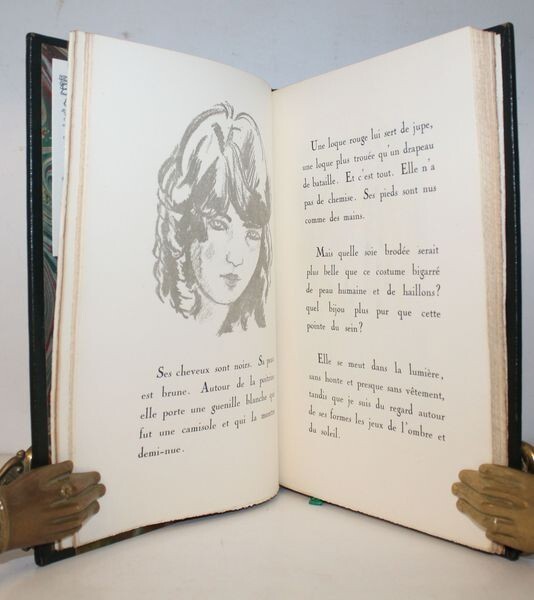 Ses cheveux sont noirs. Sa peau
est brune. Autour de la poitrine
elle porte une guenille blanche qui
fut une camisole et qui la montre
demi-nue.
Une loque rouge lui sert de jupe,
une loque plus trouée qu'un drapeau
de bataille. Et c'est tout. Elle n'a
pas de chemise. Ses pieds sont nus
comme des mains.
Mais quelle soie brodée serait
plus belle que ce costume bigarré
de peau humaine et de haillons?
quel bijou plus pur que cette
pointe du sein?
Elle se meut dans la lumière,
sans honte et presque sans vêtement,
tandis que je suis du regard autour
de ses formes les jeux de l'ombre et
du soleil.